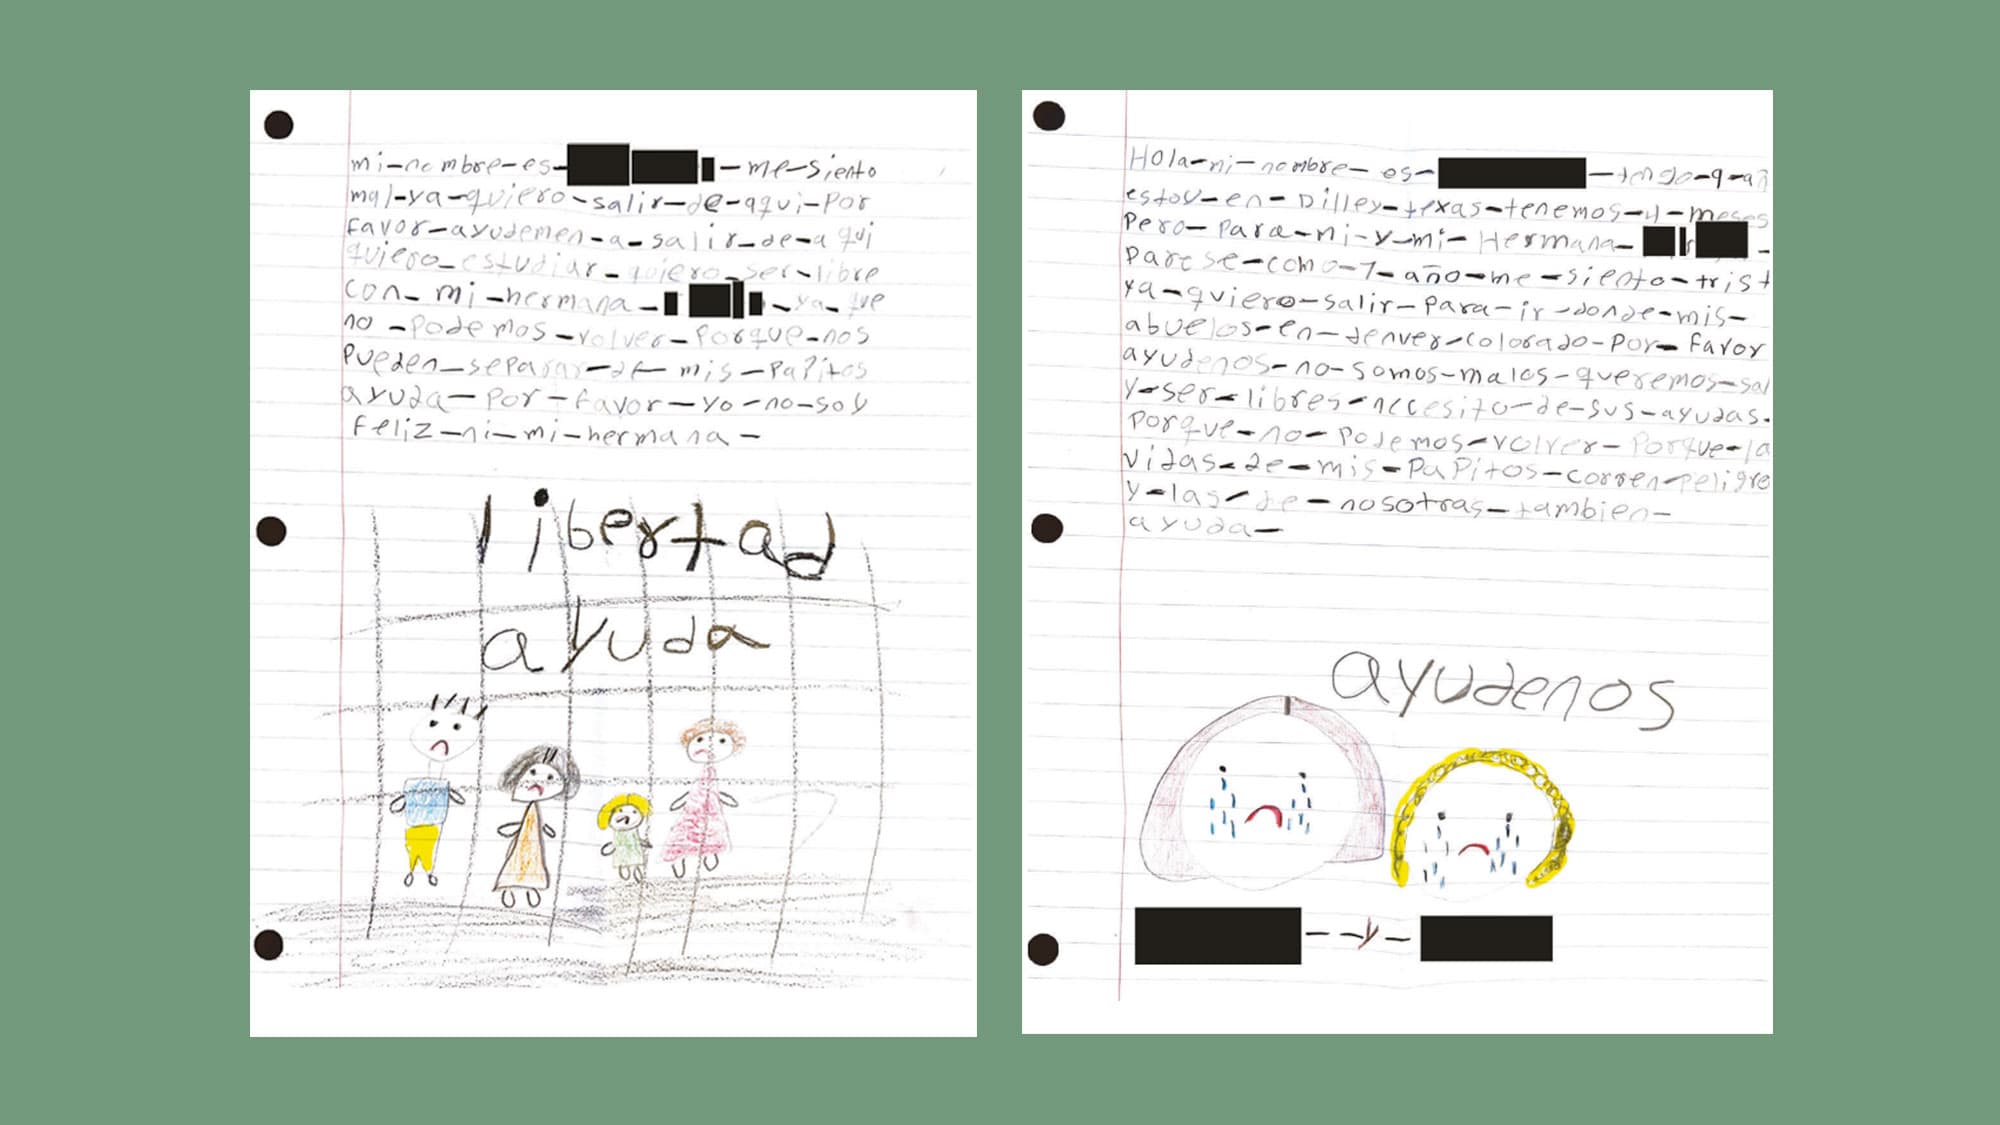 mi-nombre-es- -me-siento
mal-ya-quiero-salir-de-aqui-por
favor-ayudemen-a-salir-de-aqui
quiero-estudiar-quiero-ser-libre
con-mi-hermana- -ya-que
no-podemos-volver-porque-nos
pueden-separar-de-mis-papitos
ayuda-por-favor-yo-no-soy
feliz-ni-mi-hermana-
libertad
ayuda
Hola-mi-nombre-es- -tengo-9-añ
estoy-en-Dilley-texas-tenemos-4-meses
pero-para-mi-y-mi-Hermana- -
parese-como-1-año-me-siento-trist
ya-quiero-salir-para-ir-donde-mis-
abuelos-en-denver-colorado-por-favor
ayudenos-no-somos-malos-queremos-sal
y-ser-libres-necesito-de-sus-ayudas-
porque-no-podemos-volver-porque-la
vidas-de-mis-papitos-corren-peligro
y-las-de-nosotras-tambien-
ayuda-
ayudenos
--y-